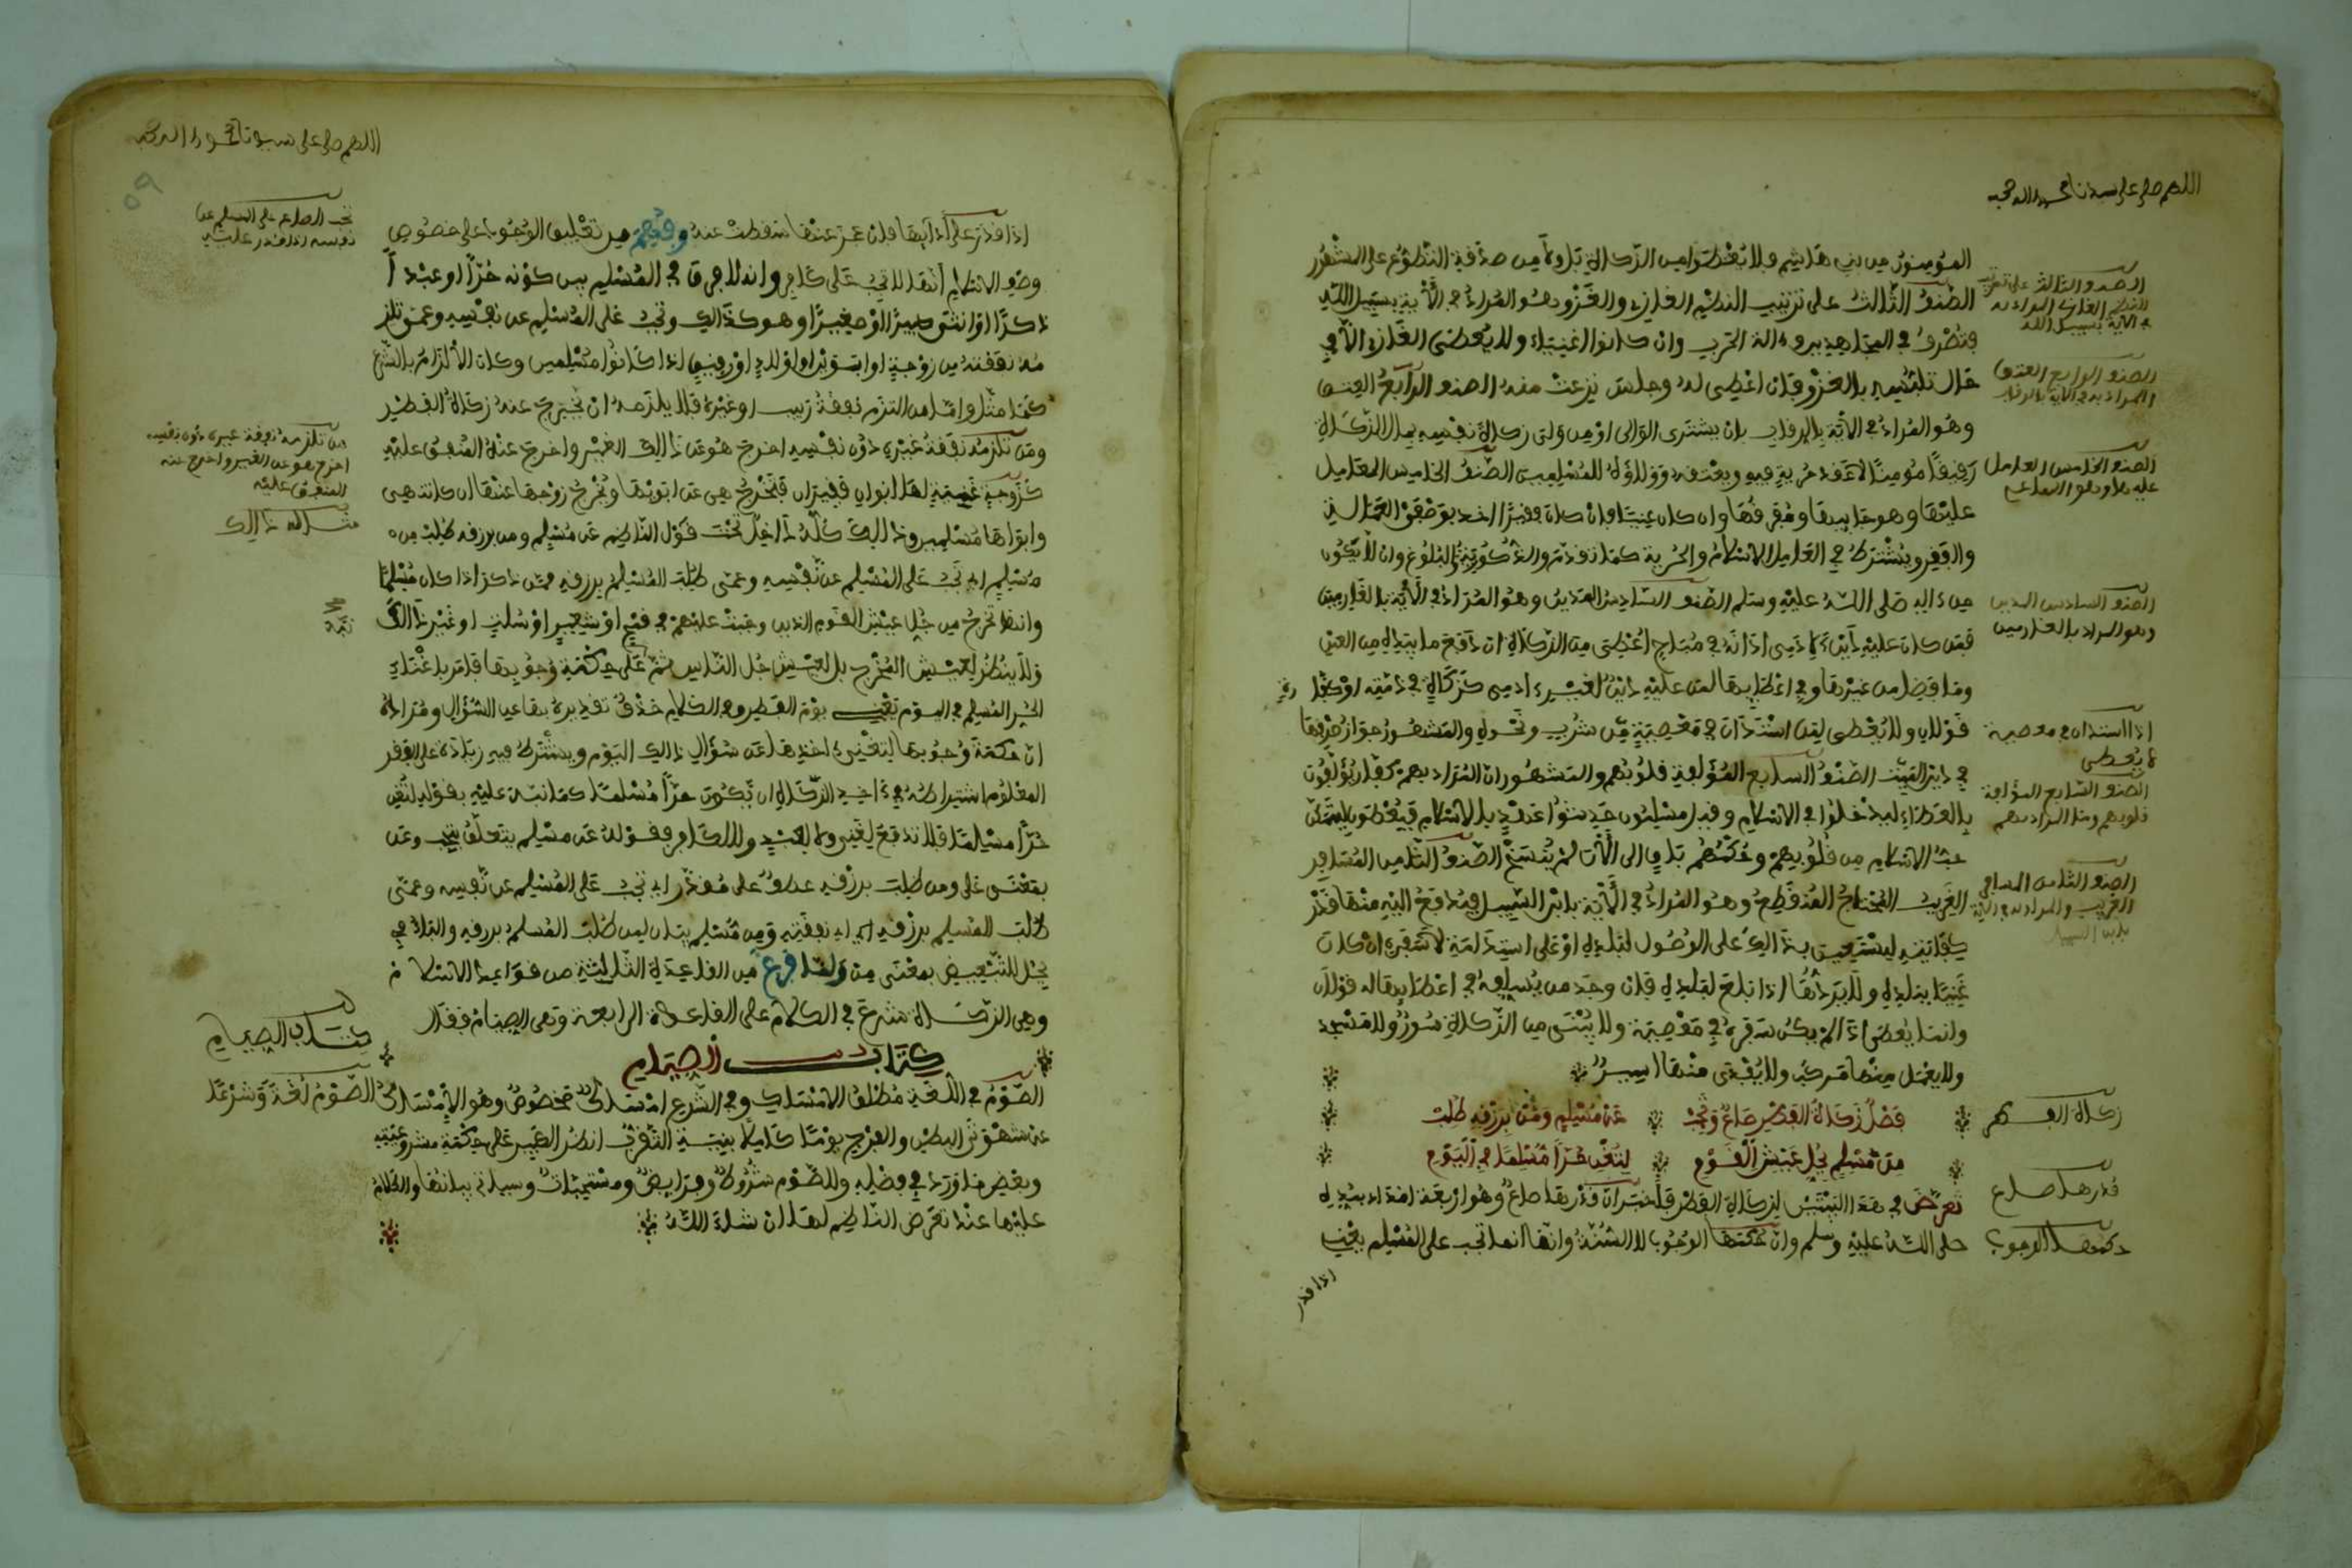 اللهم صل على سيدنا محمد وءاله وصحبه
المومنون من بني هاشم ولا يعطوا من الزكاة بل ولا من صدقة التطوع على المشهور
الصنف الثالث على ترتيب النظم الغازي والغزو وهو المراد في الآية بسبيل الله
فتصرف في المجاهدين وءالة الحرب وان كانوا اغنياء ولا يعطى الغازي الا في
حال تلبسه بالغزو فان اعطي له وجلس نزعت منه الصنف الرابع العتق
وهو المراد في الآية بالرقاب بان يشتري الوالي او من ولي زكاة نفسه بمال الزكاة
رقيقا مومنا لا عقد حرية فيه ويعتقه وولاؤه للمسلمين الصنف الخامس العامل
عليها وهو جابيها ومفرقها وان كان غنيا فان كان فقيرا اخذ بوصفي العمل
والفقر ويشترط في العامل الاسلام والحرية كما تقدم والذكورية والبلوغ وان لا يكون
من ءاله صلى الله عليه وسلم الصنف السادس المدين وهو المراد في الآية بالغارمين
فمن كان عليه دين لآدمي ادانه في مباح اعطي من الزكاة ان دفع ما بيده من العين
وما فضل من غيرها وفي اعطايها لمن عليه دين لغير ءادمي كزكاة في ذمته او كفارة
قولان ولا يعطى لمن استدان في معصية من شرب ونحوه والمشهور جواز صرفها
في دين الميت الصنف السابع المؤلفة قلوبهم والمشهور ان المراد بهم كفار يؤلفون
بالعطاء ليدخلوا في الاسلام وقيل مسلمون حديثوا عهد بالاسلام فيعطون ليتمكن
حب الاسلام من قلوبهم وحكمهم باق الى الآن لم ينسخ الصنف الثامن المسافر
الغريب المحتاج المنقطع وهو المراد في الآية بابن السبيل فيدفع اليه منها قدر
كفايته ليستعين بذالك على الوصول لبلده او على استدامة سفره ان كان
غنيا ببلده ولا يردها اذا بلغ لبلده فان وجد من يسلفه في اعطايه قولان
وانما يعطى اذا لم يكن سفره في معصية ولا يبنى من الزكاة سور ولا مسجد
ولا يعمل منها مركب ولا يفدى منها اسير
فصل زكاة الفطر صاع وتجب عن مسلم ومن برزقه طلب
من مسلم بجل عيش القوم لتغن حرا مسلما في اليوم
تعرض في هذا البيتين لزكاة الفطر فاخبر ان قدرها صاع وهو اربعة امداد بمده
صلى الله عليه وسلم وان حكمها الوجوب لا السنة وانها انما تجب على المسلم يعني
اذا قدر
الصنف الثالث على ترتيب
النظم الغازي المراد به
في الآية بسبيل الله
الصنف الرابع العتق
المراد به في الآية بالرقاب
الصنف الخامس العامل
عليها وهو الساعي
الصنف السادس المدين
وهو المراد بالغارمين
اذا استدان في معصية
لا يعطى
الصنف السابع المؤلفة
قلوبهم وما المراد بهم
الصنف الثامن المسافر
الغريب والمراد به في الآية
بابن السبيل
زكاة الفطر
قدرها صاع
حكمها الوجوب
اللهم صل على سيدنا محمد وءاله وصحبه
٥٩
اذا قدر على أدائها فان عجز عنها سقطت عنه وفهم من تعليق الوجوب على خصوص
وصف الاسلام أنها لا تجب على كافر وانه لا فرق في المسلم بين كونه حرا او عبدا
ذكرا او انثى كبيرا او صغيرا وهو كذالك وتجب على المسلم عن نفسه وعمن تلز
مه نفقته من زوجة او ابوين او اولاد او رقيق اذا كانوا مسلمين وكان الالزام بالشرع
كما مثل واما من التزم نفقة ربيب او غيره فلا يلزمه ان يخرج عنه زكاة الفطر
ومن تلزمه نفقة غيره دون نفسه اخرج هو عن ذالك الغير واخرج عنه المنفق عليه
كزوجة غنية لها ابوان فقيران فتخرج هي عن ابويها ويخرج زوجها عنها ان كانت هي
وابواها مسلمين وذالك كله داخل تحت قول الناظم عن مسلم ومن برزقه طلب من
مسلم اي تجب على المسلم عن نفسه وعمن طلب المسلم برزقه ممن ذكر اذا كان مسلما
وانما تخرج من جل عيش القوم الذين وجبت عليهم في قمح او شعير او سلت او غير ذالك
ولا ينظر لعيش المخرج بل لعيش جل الناس ثم على حكمة وجوبها قام باغناء
الحر المسلم في اليوم يعني يوم الفطر وفي الكلام حذف تقديره بها عن السؤال ومراده
ان حكمة وجوبها لتغني ءاخذها عن سؤال ذالك اليوم ويشترط فيه زيادة على الفقر
المعلوم اشتراطه في ءاخذ الزكاة ان يكون حرا مسلما كما نبه عليه بقوله لتغن
حرا مسلما فلا تدفع لغني ولا لعبد ولا لكافر فقوله عن مسلم يتعلق بتجب وعن
بمعنى على ومن طلب برزقه عطف على مقدر اي تجب على المسلم عن نفسه وعمن
طلب المسلم برزقه اي اي نفقته ومن مسلم بيان لمن طلب المسلم برزقه والباء في
بجل للتبعيض بمعنى من ولما فرغ من القاعدة الثالثة من قواعد الاسلام
وهي الزكاة شرع في الكلام على القاعدة الرابعة وهي الصيام فقال
كتاب الصيام
الصوم في اللغة مطلق الامساك وفي الشرع امساك مخصوص وهو الامساك
عن شهوتي البطن والفرج يوما كاملا بنية التقرب انظر الكبير على حكمة مشروعيته
وبعض ما ورد في فضله وللصوم شروط وفرايض ومستحبات وسياتي بيانها والكلام
عليها عند تعرض الناظم لها ان شاء الله
تجب الصاع على المسلم عن
نفسه اذا قدر عليه
من تلزمه نفقة غيره دون نفسه
اخرج هو عن الغير واخرج عنه
المنفق عليه
مثاله ذالك
كتاب الصيام
الصوم لغة وشرعا